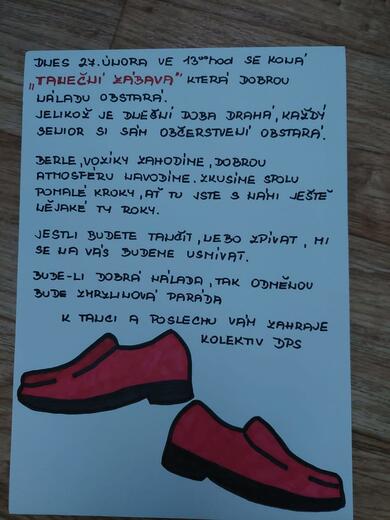 DNES 27. ÚNORA VE 13⁰⁰ hod SE KONÁ
„TANEČNÍ ZÁBAVA" KTERÁ DOBROU
NÁLADU OBSTARÁ.
JELIKOŽ JE DNEŠNÍ DOBA DRAHÁ, KAŽDÝ
SENIOR SI SÁM OBČERSTVENÍ OBSTARÁ.
BERLE, VOZÍKY ZAHODÍME, DOBROU
ATMOSFÉRU NAVODÍME. ZKUSÍME SPOLU
POMALÉ KROKY, AŤ TU JSTE S NÁMI JEŠTĚ
NĚJAKÉ TY ROKY.
JESTLI BUDETE TANČIT, NEBO ZPÍVAT, MI
SE NA VÁS BUDEME USMÍVAT.
BUDE-LI DOBRÁ NÁLADA, TAK ODMĚNOU
BUDE ZMRZLINOVÁ PARÁDA
K TANCI A POSLECHU VÁM ZAHRAJE
KOLEKTIV DPS